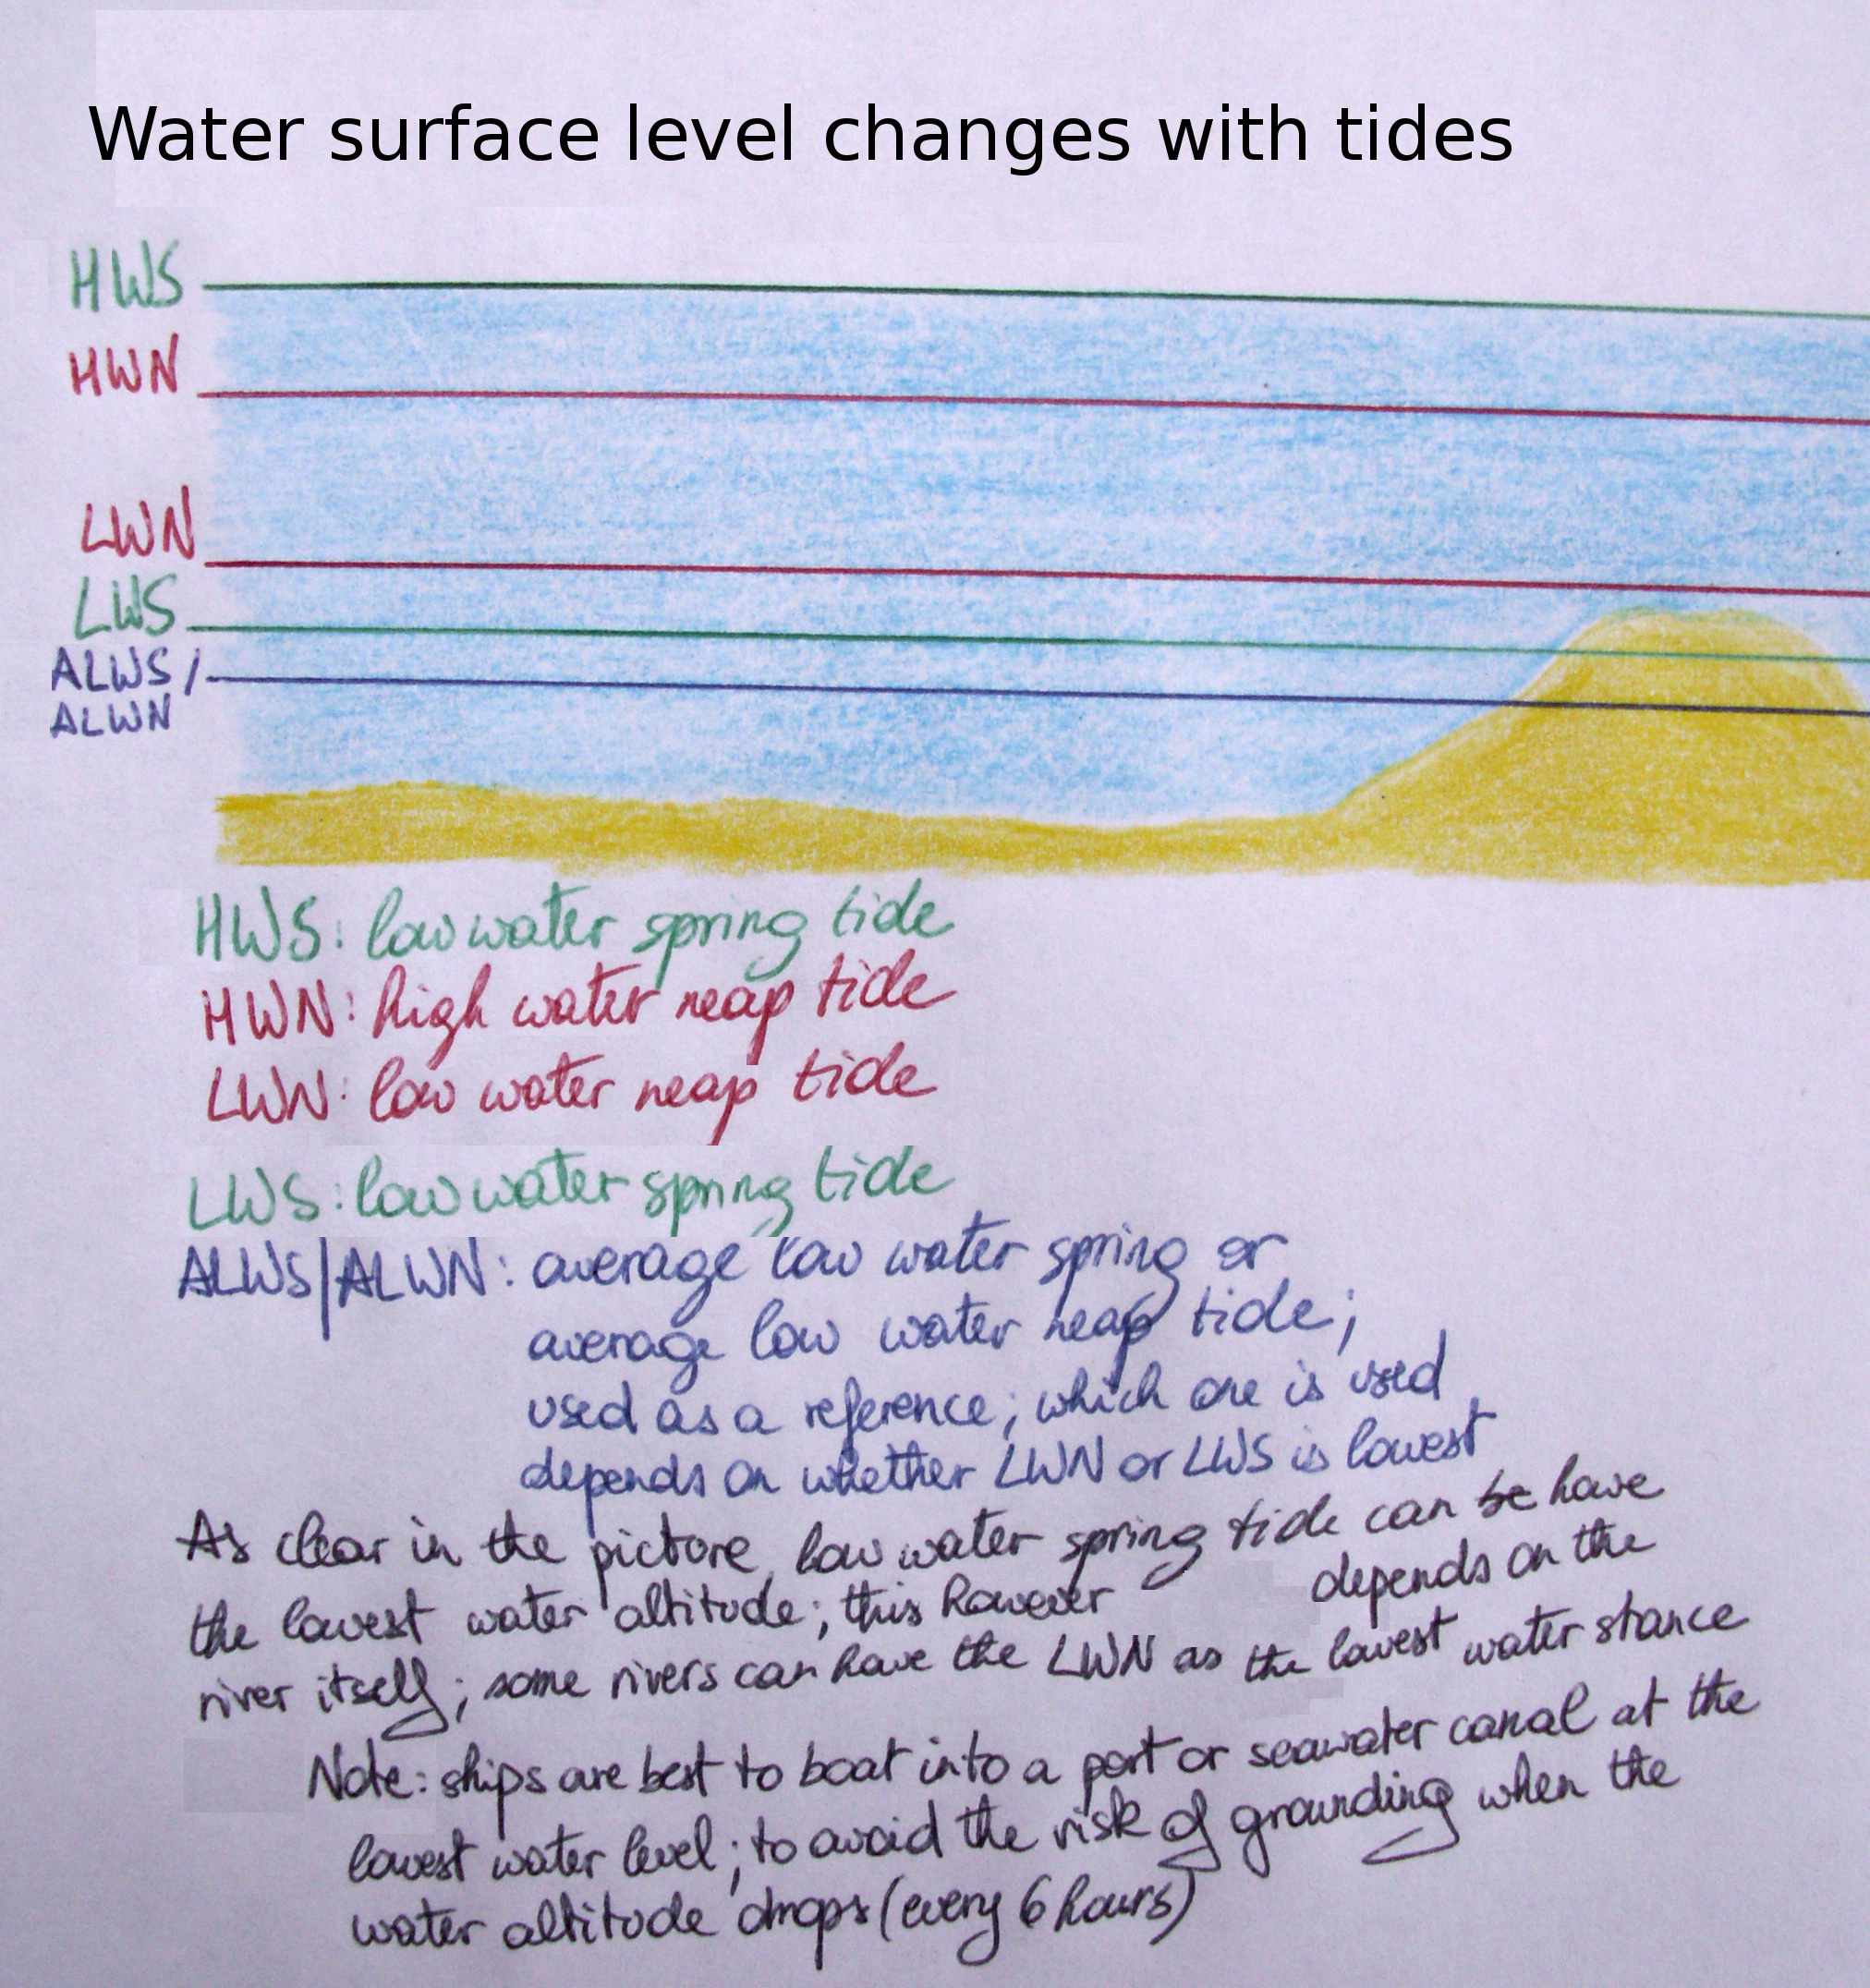 Water surface level changes with tides
HWS
HWN
LWN
LWS
ALWS /
ALWN
HWS: low water spring tide
HWN: high water neap tide
LWN: low water neap tide
LWS: low water spring tide
ALWS/ALWN: average low water spring or
average low water neap tide;
used as a reference; which one is used
depends on whether LWN or LWS is lowest
As clear in the picture, low water spring tide can be have
the lowest water altitude; this however depends on the
river itself; some rivers can have the LWN as the lowest water stance
Note: ships are best to boat into a port or seawater canal at the
lowest water level; to avoid the risk of grounding when the
water altitude drops (every 6 hours)